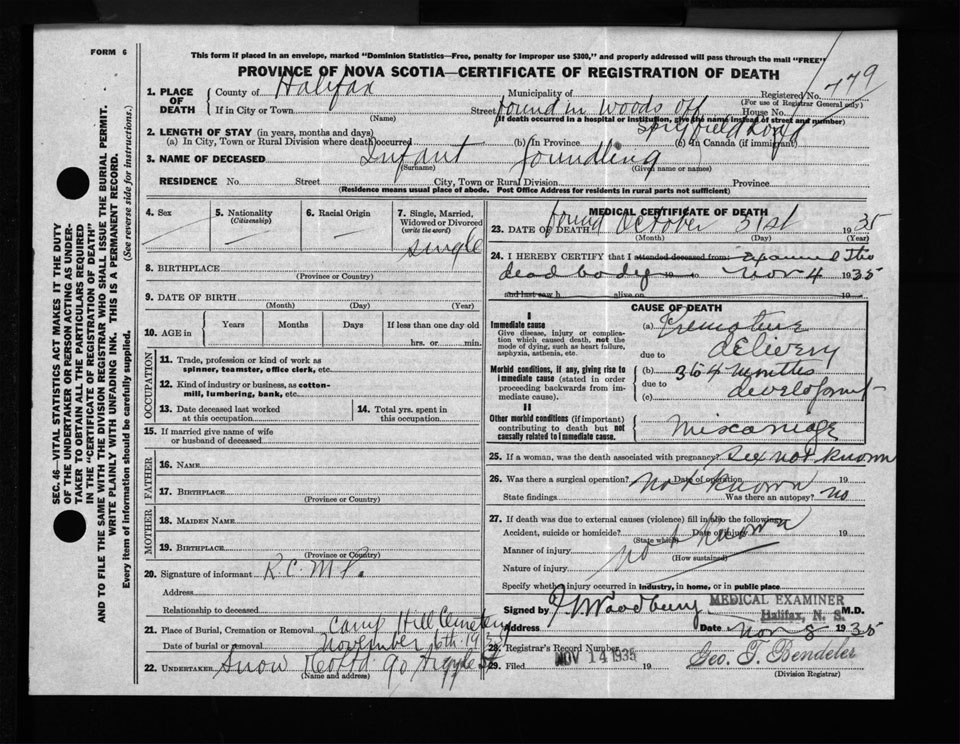 FORM 6
This form if placed in an envelope, marked "Dominion Statistics—Free, penalty for improper use $300," and properly addressed will pass through the mail "FREE"
PROVINCE OF NOVA SCOTIA—CERTIFICATE OF REGISTRATION OF DEATH
SEC. 46—VITAL STATISTICS ACT MAKES IT THE DUTY
OF THE UNDERTAKER OR PERSON ACTING AS UNDER-
TAKER TO OBTAIN ALL THE PARTICULARS REQUIRED
IN THE "CERTIFICATE OF REGISTRATION OF DEATH"
AND TO FILE THE SAME WITH THE DIVISION REGISTRAR WHO SHALL ISSUE THE BURIAL PERMIT.
WRITE PLAINLY WITH UNFADING INK. THIS IS A PERMANENT RECORD.
Every item of information should be carefully supplied. (See reverse side for instructions.)
1. PLACE OF DEATH
County of Halifax Municipality of Registered No. 479
(For use of Registrar General only)
If in City or Town Street found in woods off House No.
(Name) If death occurred in a hospital or institution, give the name instead of street and number)
Spryfield Road
2. LENGTH OF STAY (in years, months and days)
(a) In City, Town or Rural Division where death occurred (b) In Province (c) In Canada (if immigrant)
3. NAME OF DECEASED Infant foundling
(Surname) (Given name or names)
RESIDENCE No. Street City, Town or Rural Division Province
(Residence means usual place of abode. Post Office Address for residents in rural parts not sufficient)
4. Sex
5. Nationality
(Citizenship)
6. Racial Origin
7. Single, Married,
Widowed or Divorced
(write the word)
single
8. BIRTHPLACE
(Province or Country)
9. DATE OF BIRTH
(Month) (Day) (Year)
10. AGE in
Years Months Days If less than one day old
hrs. or min.
OCCUPATION
11. Trade, profession or kind of work as
spinner, teamster, office clerk, etc.
12. Kind of industry or business, as cotton-
mill, lumbering, bank, etc.
13. Date deceased last worked
at this occupation
14. Total yrs. spent in
this occupation
15. If married give name of wife
or husband of deceased
FATHER
16. NAME
17. BIRTHPLACE
(Province or Country)
MOTHER
18. MAIDEN NAME
19. BIRTHPLACE
(Province or Country)
20. Signature of informant R.C.M.P.
Address
Relationship to deceased
21. Place of Burial, Cremation or Removal Camp Hill Cemetery
Date of burial or removal November 6th 1935
22. UNDERTAKER Snow & Co Ltd 90 Argyle St
(Name and address)
MEDICAL CERTIFICATE OF DEATH
23. DATE OF DEATH found October 31st 1935
(Month) (Day) (Year)
24. I HEREBY CERTIFY that I attended deceased from: examined the
dead body to Nov 4 1935
and last saw h alive on 19
CAUSE OF DEATH
I
Immediate cause
Give disease, injury or complica-
tion which caused death, not the
mode of dying, such as heart failure,
asphyxia, asthenia, etc.
(a) Premature
delivery
due to
Morbid conditions, if any, giving rise to
immediate cause (stated in order
proceeding backwards from im-
mediate cause).
(b) 3 to 4 months
due to
(c) development
II
Other morbid conditions (if important)
contributing to death but not
causally related to immediate cause.
Miscarriage
25. If a woman, was the death associated with pregnancy? Sex not known
26. Was there a surgical operation? Not known Date of operation 19
State findings Was there an autopsy? no
27. If death was due to external causes (violence) fill in also the following:
Accident, suicide or homicide? Date of injury 19
(State which)
Manner of injury not known
(How sustained)
Nature of injury
Specify whether injury occurred in industry, in home, or in public place
Signed by Woodbury MEDICAL EXAMINER M.D.
Halifax, N. S.
Address Date Nov 8 1935
28. Registrar's Record Number
29. Filed NOV 14 1935 19 Geo. T. Bendeler
(Division Registrar)